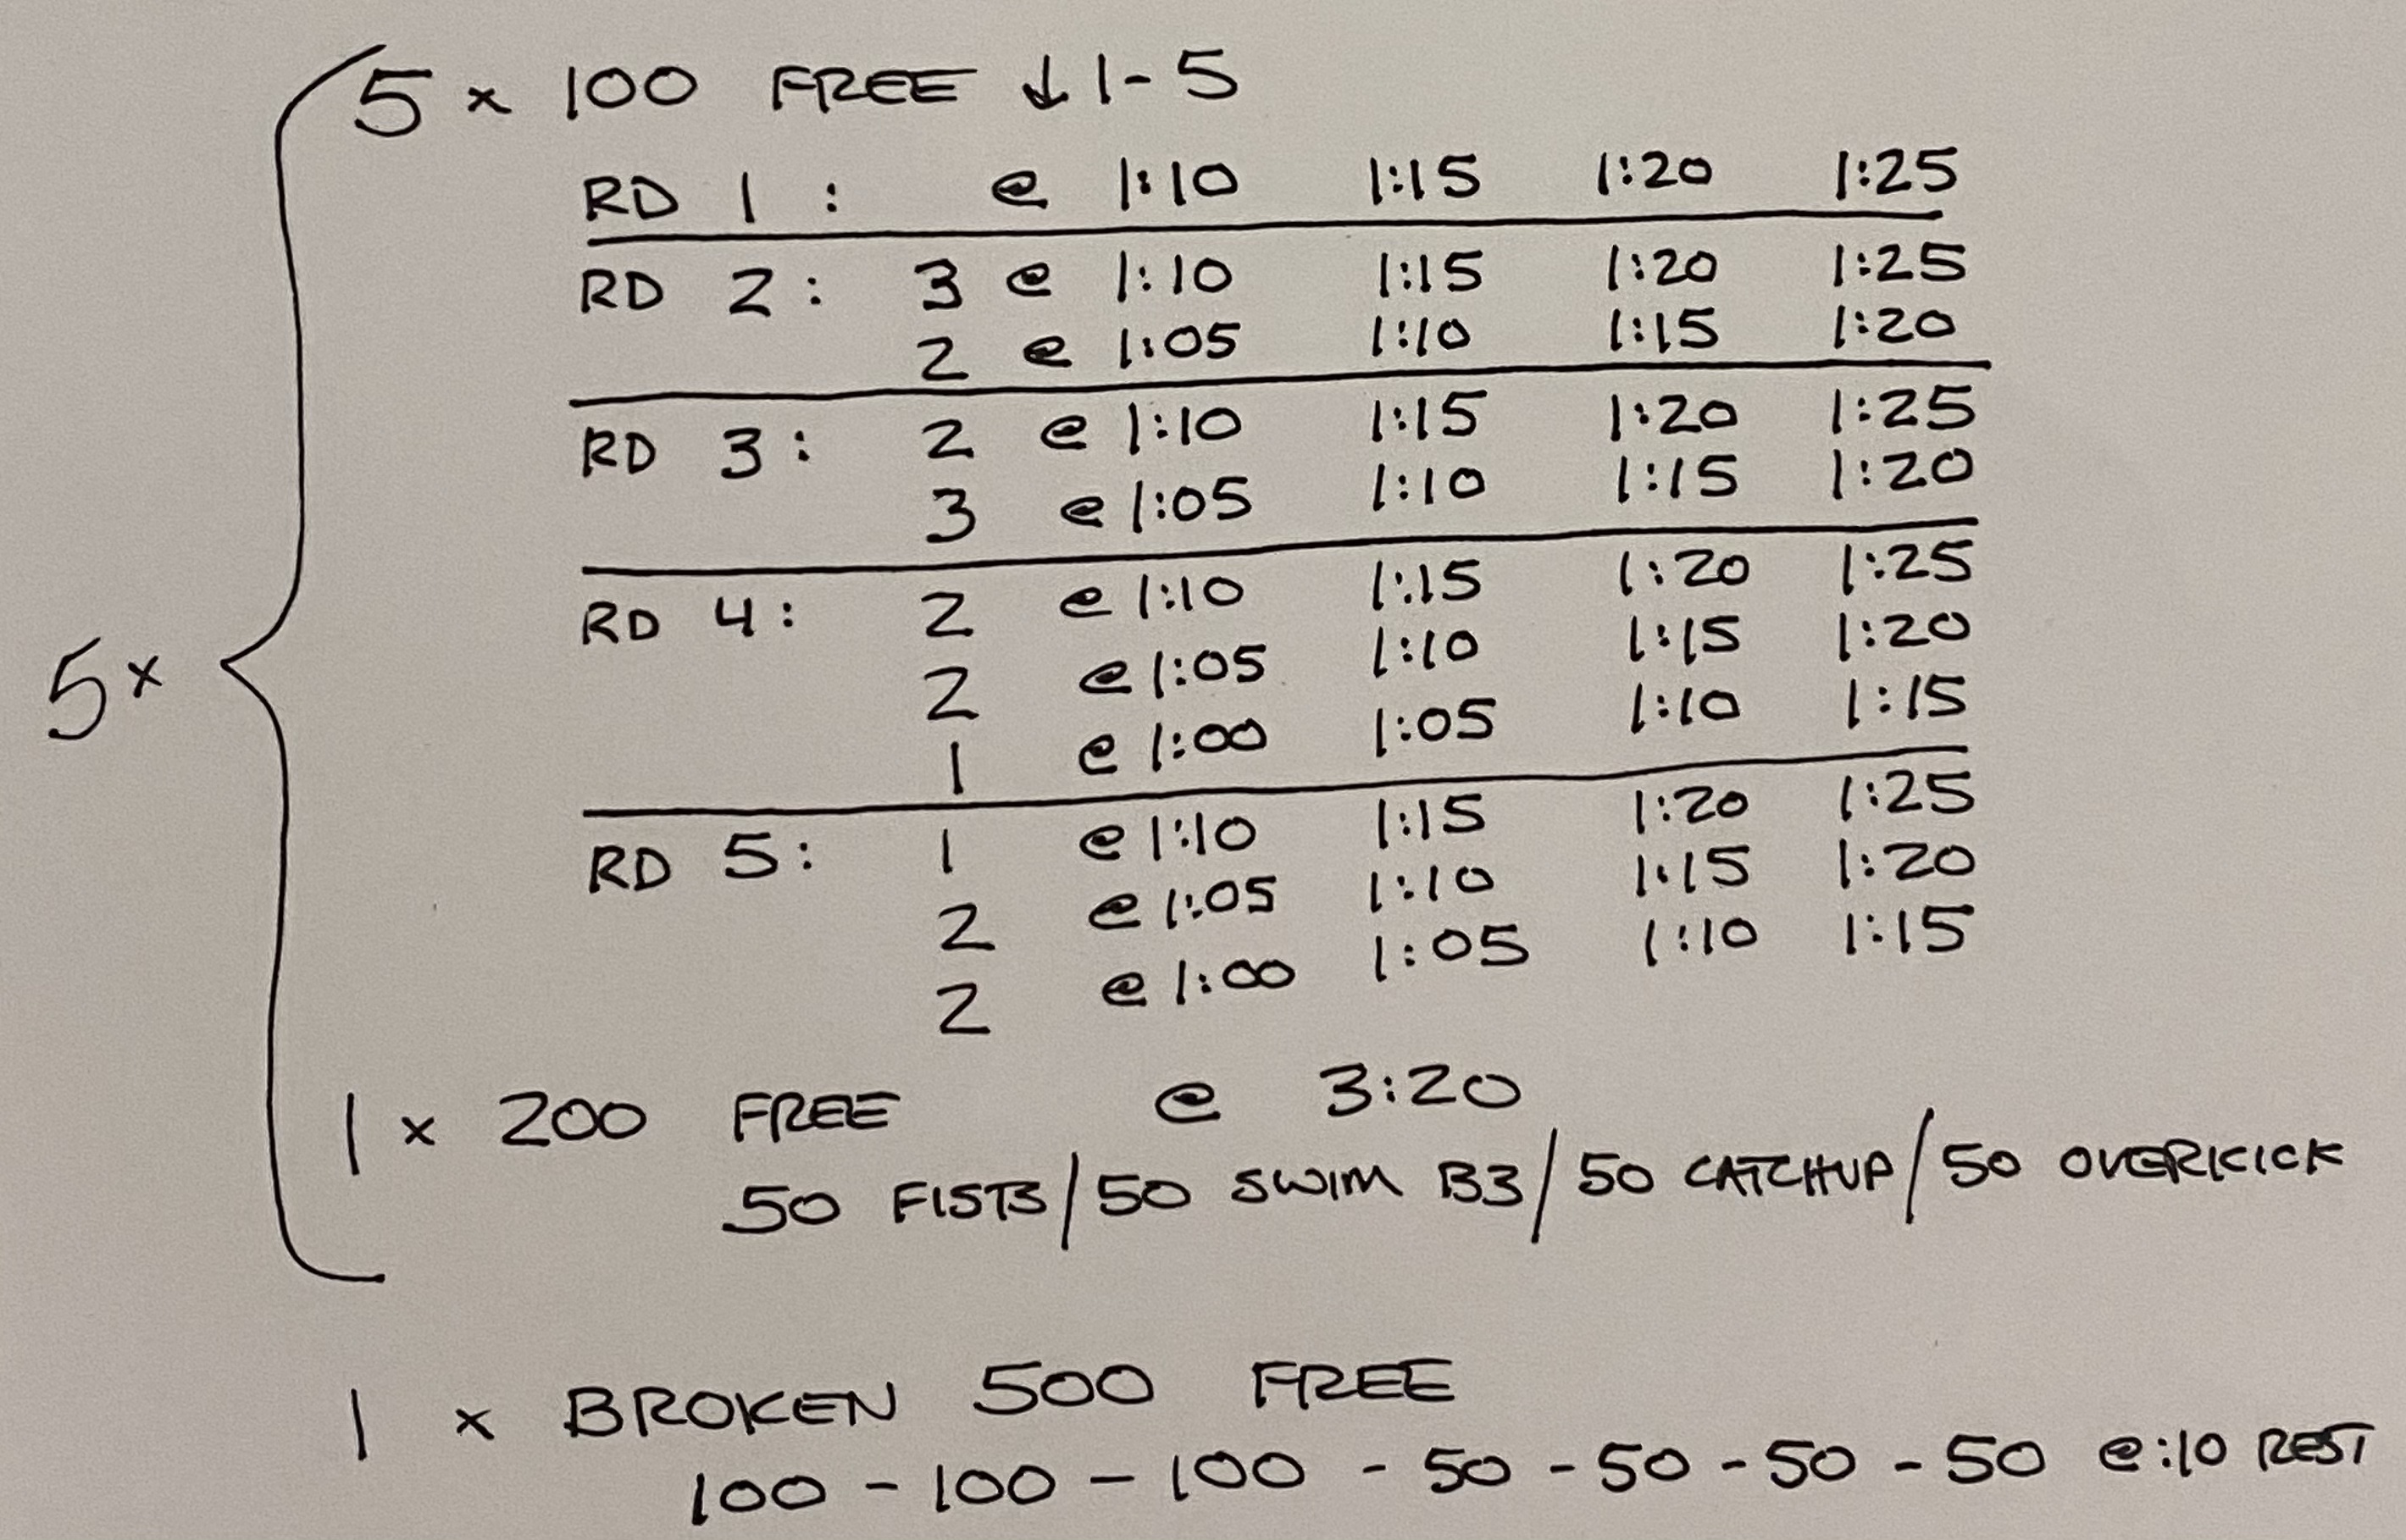 5 x 100 FREE ↓ 1-5
RD 1 : @ 1:10 1:15 1:20 1:25
RD 2 : 3 @ 1:10 1:15 1:20 1:25
2 @ 1:05 1:10 1:15 1:20
RD 3 : 2 @ 1:10 1:15 1:20 1:25
3 @ 1:05 1:10 1:15 1:20
RD 4 : 2 @ 1:10 1:15 1:20 1:25
5x
2 @ 1:05 1:10 1:15 1:20
1 @ 1:00 1:05 1:10 1:15
RD 5 : 1 @ 1:10 1:15 1:20 1:25
2 @ 1:05 1:10 1:15 1:20
2 @ 1:00 1:05 1:10 1:15
1 x 200 FREE @ 3:20
50 FISTS / 50 SWIM B3 / 50 CATCHUP / 50 OVERKICK
1 x BROKEN 500 FREE
100 - 100 - 100 - 50 - 50 - 50 - 50 @ :10 REST